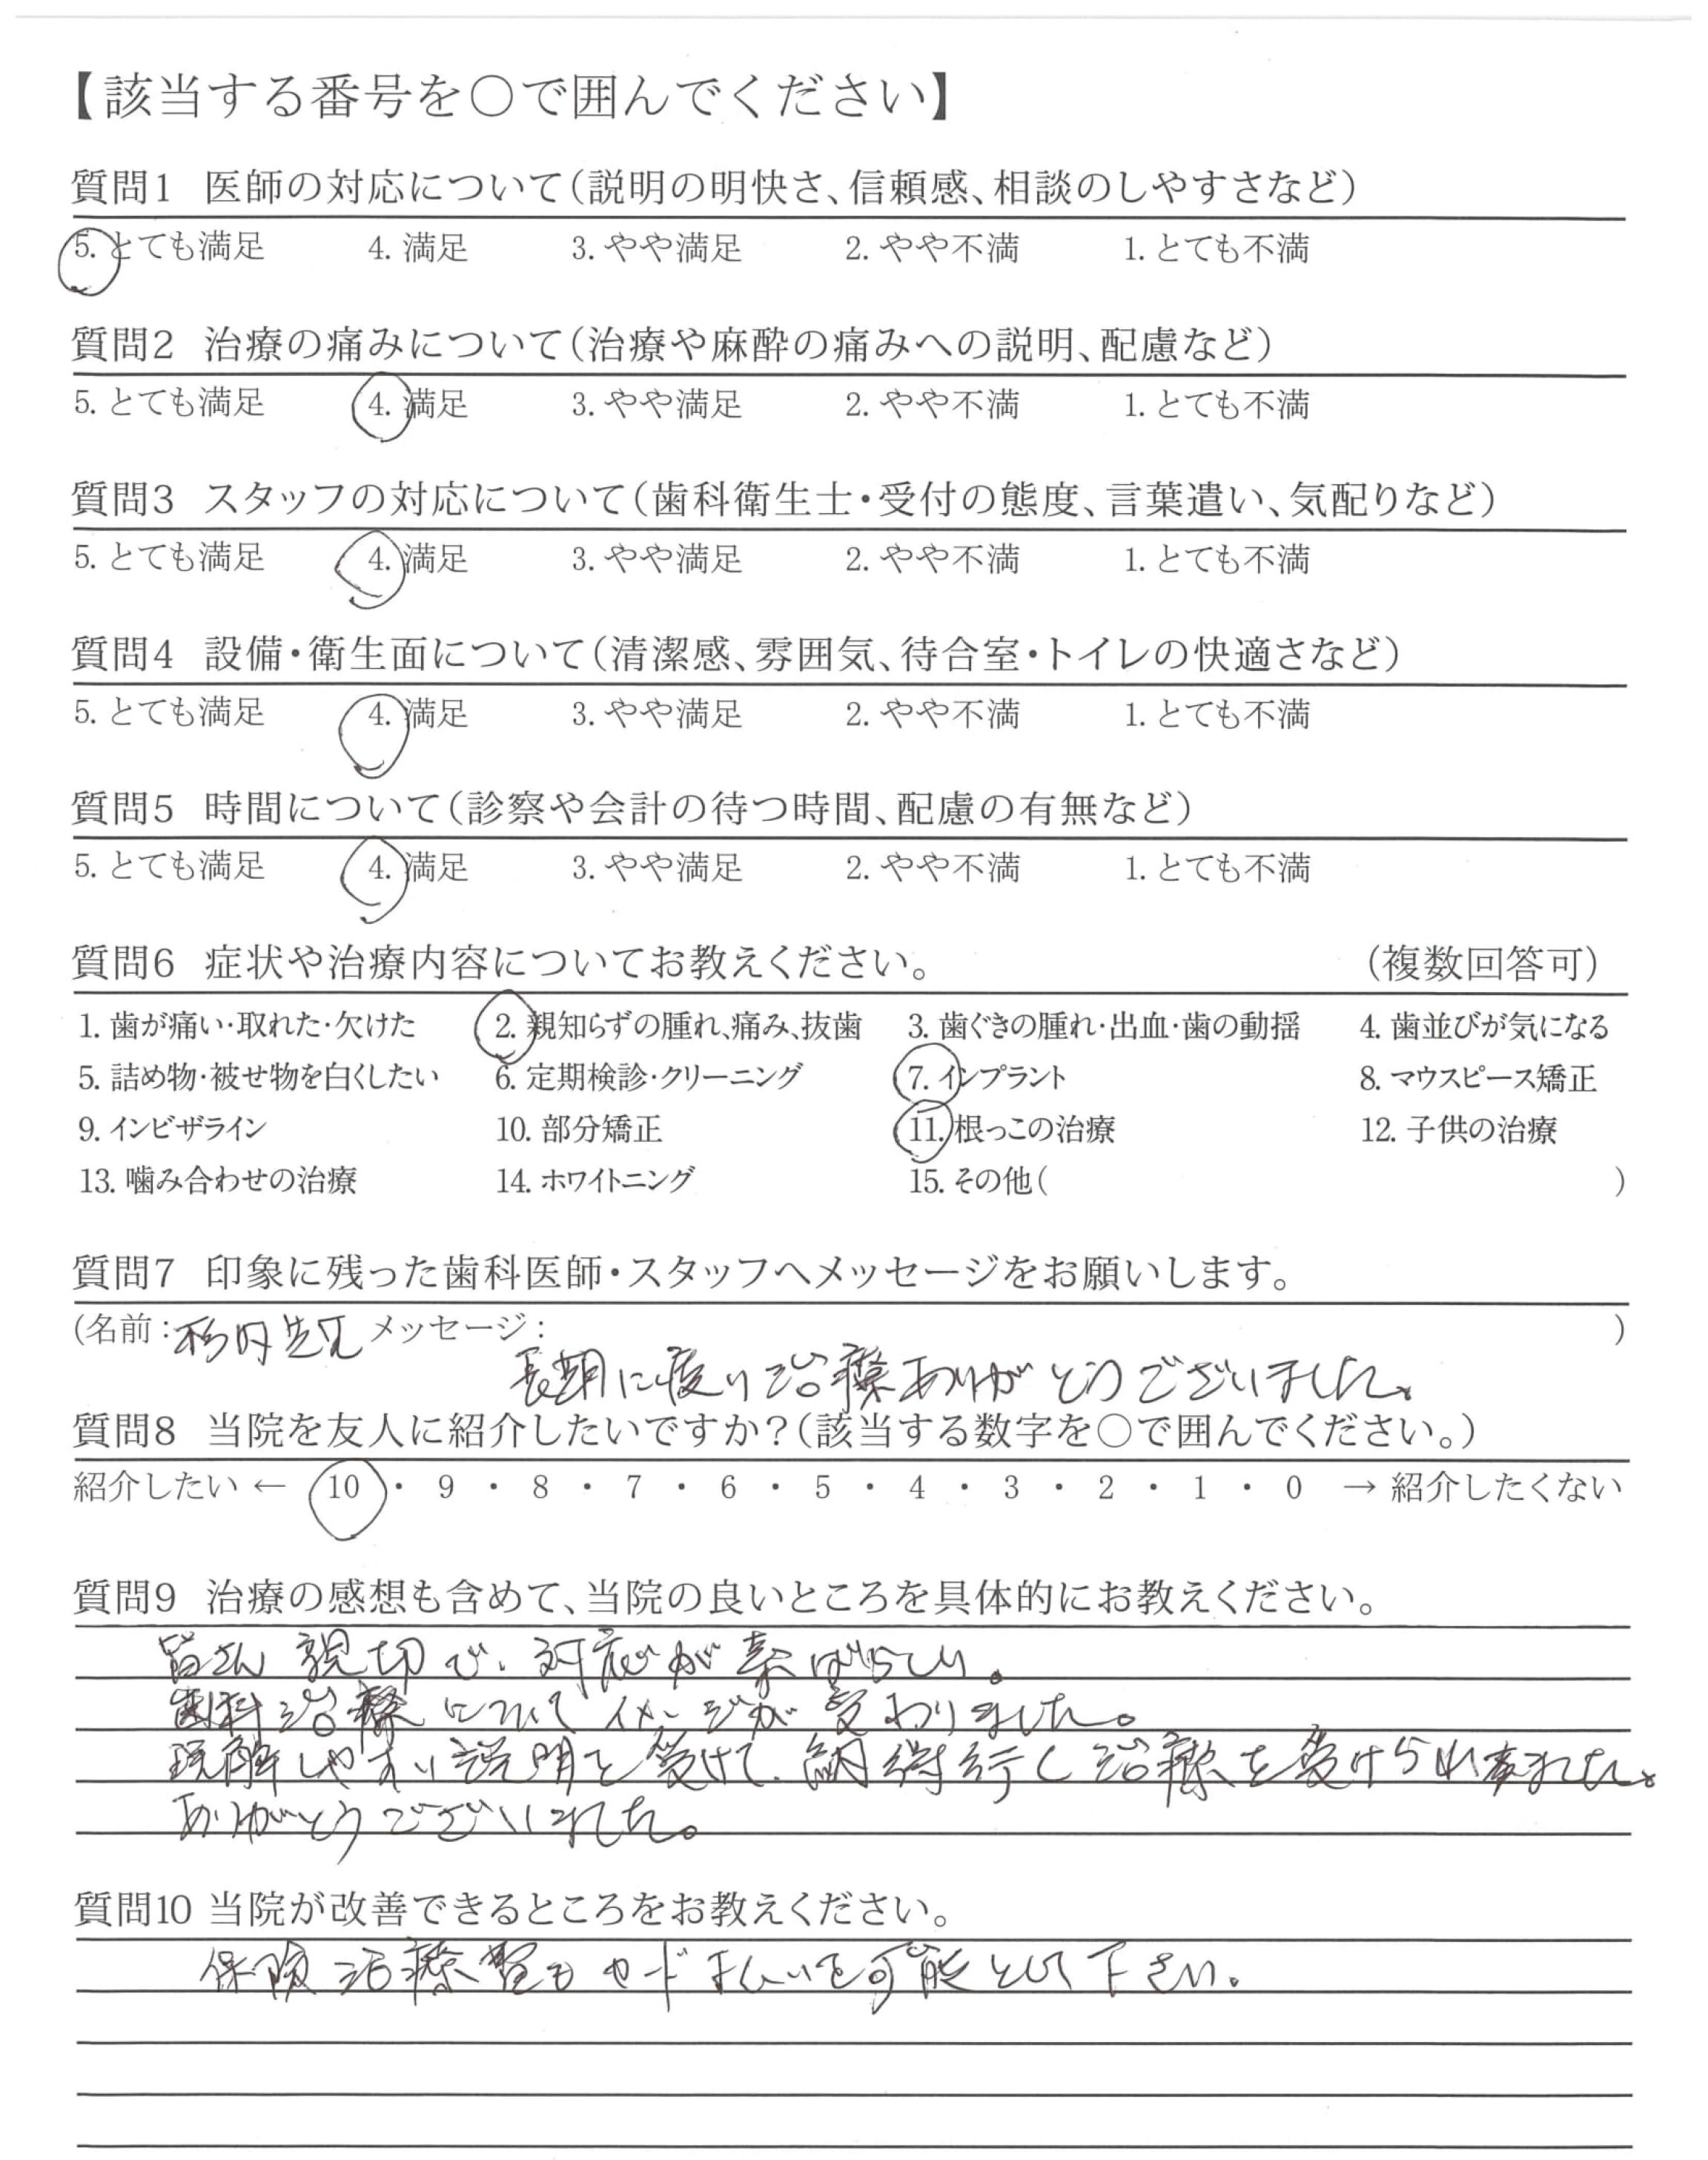 【該当する番号を○で囲んでください】
質問1 医師の対応について(説明の明快さ、信頼感、相談のしやすさなど)
5. とても満足 4. 満足 3. やや満足 2. やや不満 1. とても不満
質問2 治療の痛みについて(治療や麻酔の痛みへの説明、配慮など)
5. とても満足 4. 満足 3. やや満足 2. やや不満 1. とても不満
質問3 スタッフの対応について(歯科衛生士・受付の態度、言葉遣い、気配りなど)
5. とても満足 4. 満足 3. やや満足 2. やや不満 1. とても不満
質問4 設備・衛生面について(清潔感、雰囲気、待合室・トイレの快適さなど)
5. とても満足 4. 満足 3. やや満足 2. やや不満 1. とても不満
質問5 時間について(診察や会計の待つ時間、配慮の有無など)
5. とても満足 4. 満足 3. やや満足 2. やや不満 1. とても不満
質問6 症状や治療内容についてお教えください。 (複数回答可)
1. 歯が痛い・取れた・欠けた 2. 親知らずの腫れ、痛み、抜歯 3. 歯ぐきの腫れ・出血・歯の動揺 4. 歯並びが気になる
5. 詰め物・被せ物を白くしたい 6. 定期検診・クリーニング 7. インプラント 8. マウスピース矯正
9. インビザライン 10. 部分矯正 11. 根っこの治療 12. 子供の治療
13. 噛み合わせの治療 14. ホワイトニング 15. その他( )
質問7 印象に残った歯科医師・スタッフへメッセージをお願いします。
(名前: 先生 メッセージ: )
長期に渡り治療ありがとうございました。
質問8 当院を友人に紹介したいですか?(該当する数字を○で囲んでください。)
紹介したい ← 10 ・ 9 ・ 8 ・ 7 ・ 6 ・ 5 ・ 4 ・ 3 ・ 2 ・ 1 ・ 0 → 紹介したくない
質問9 治療の感想も含めて、当院の良いところを具体的にお教えください。
皆さん親切で、対応が素ばらしい。
歯科治療についてイメージが変わりました。
理解しやすい説明を受けて、納得行く治療を受けられました。
ありがとうございました。
質問10 当院が改善できるところをお教えください。
保険治療費もカード払いを可能として下さい。